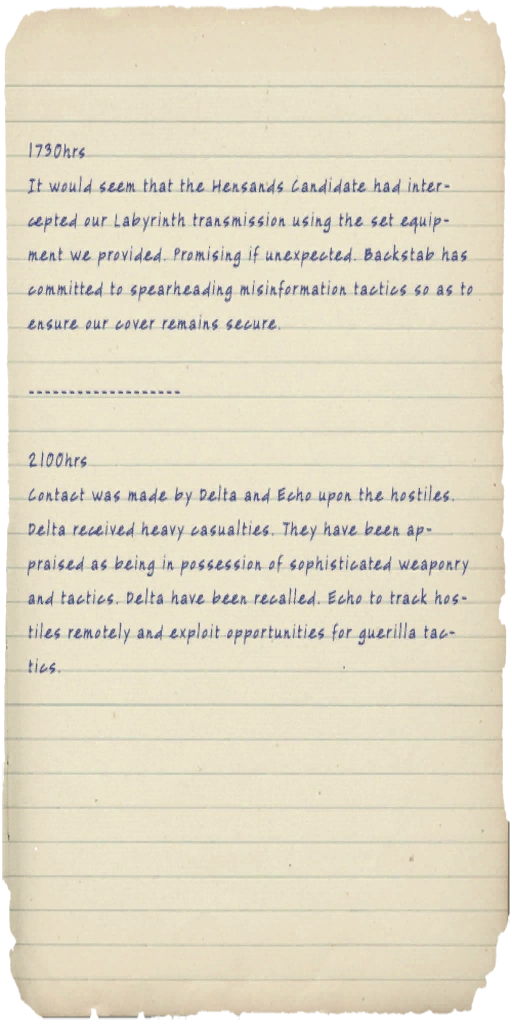 1730hrs
It would seem that the Hensands Candidate had inter-
cepted our Labyrinth transmission using the set equip-
ment we provided. Promising if unexpected. Backstab has
committed to spearheading misinformation tactics so as to
ensure our cover remains secure.
-------------------
2100hrs
Contact was made by Delta and Echo upon the hostiles.
Delta received heavy casualties. They have been ap-
praised as being in possession of sophisticated weaponry
and tactics. Delta have been recalled. Echo to track hos-
tiles remotely and exploit opportunities for guerilla tac-
tics.